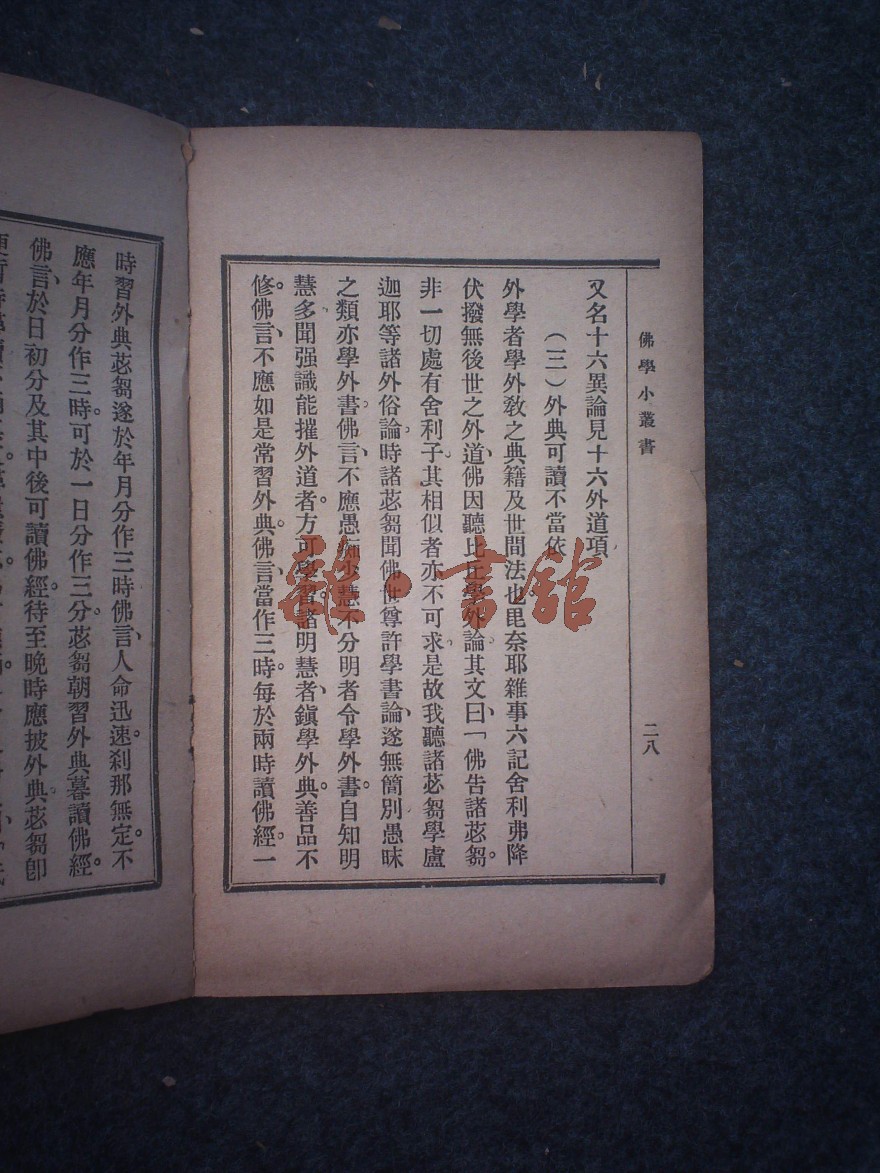 佛學小叢書
二八
又名十六異論見十六外道項
(三)外典可讀不當依
外學者學外教之典籍及世間法也毘奈耶雜事六記舍利弗降
伏撥無後世之外道、佛因聽比丘學外論、其文曰、「佛告諸苾芻。
非一切處有舍利子、其相似者亦不可求。是故我聽諸苾芻學盧
迦耶等諸外俗論。時諸苾芻聞佛世尊許學書論、遂無簡別愚昧
之類亦學外書。佛言、不應愚痴少慧不分明者令學外書自知明
慧多聞强識能摧外道者。方可學習諸明慧者、鎭學外典。善品不
修。佛言、不應如是常習外典。佛言、當作三時。每於兩時讀佛經。一
時習外典苾芻遂於年月分作三時佛言、人命迅速刹那無定。不
應年月分作三時。可於一日分作三分。苾芻朝習外典暮讀佛經。
佛言、於日初分及其中後可讀佛經。待至晚時應披外典。苾芻卽
雜·書館